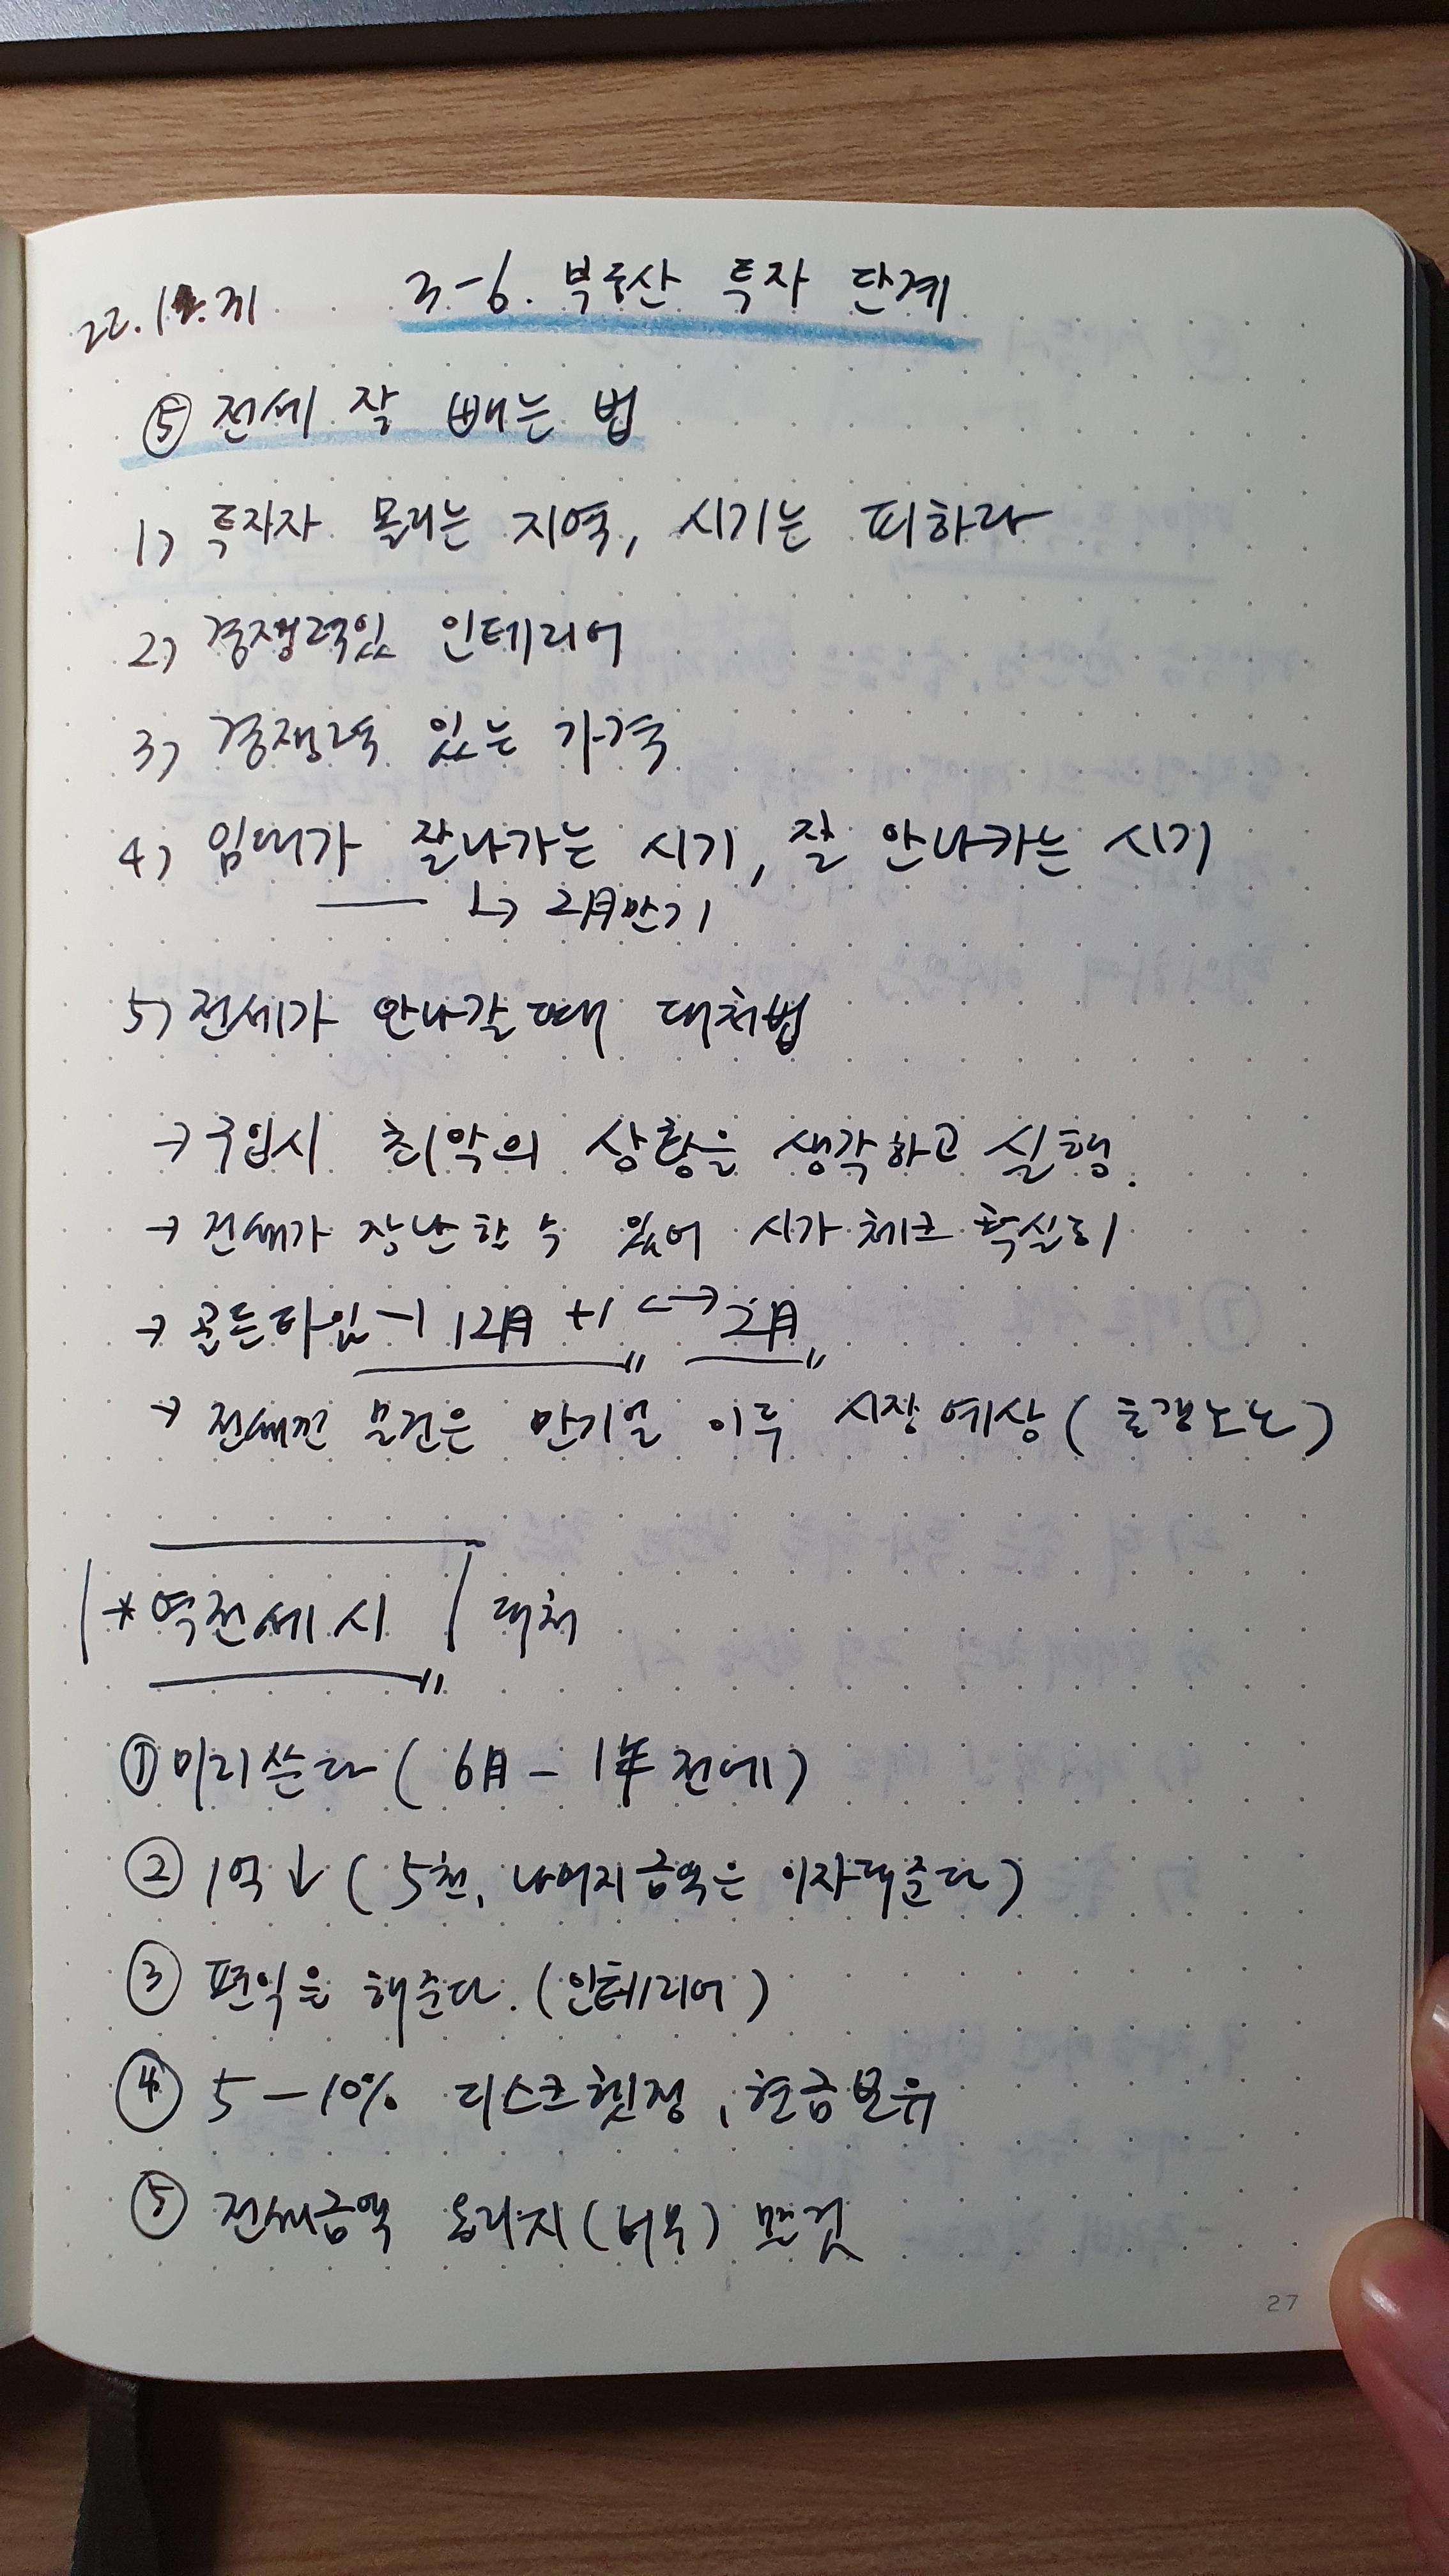 3-6. 부동산 투자 단계
⑤ 전세 잘 빼는 법
1) 투자자 몰리는 지역, 시기는 피하라
2) 경쟁력있 인테리어
3) 경쟁력 있는 가격
4) 임대가 잘나가는 시기, 잘 안나가는 시기
↳ 2月만기
5) 전세가 안나갈때 대처법
→ 구입시 최악의 상황을 생각하고 실행.
→ 전세가 장난할 수 있어 시가 체크 확실히
→ 골든타임 -1 12月 +1 ↔ 2月
→ 전세낀 물건은 만기일 이후 시장 예상 (호갱노노)
* 역전세 시 대처
① 미리쓴다 (6月 - 1年 전에)
② 1억↓ (5천, 나머지금액은 이자대준다)
③ 편익을 해준다. (인테리어)
④ 5-10% 디스크 헷징, 현금보유
⑤ 전세금액 올리지 (너무) 말것
27